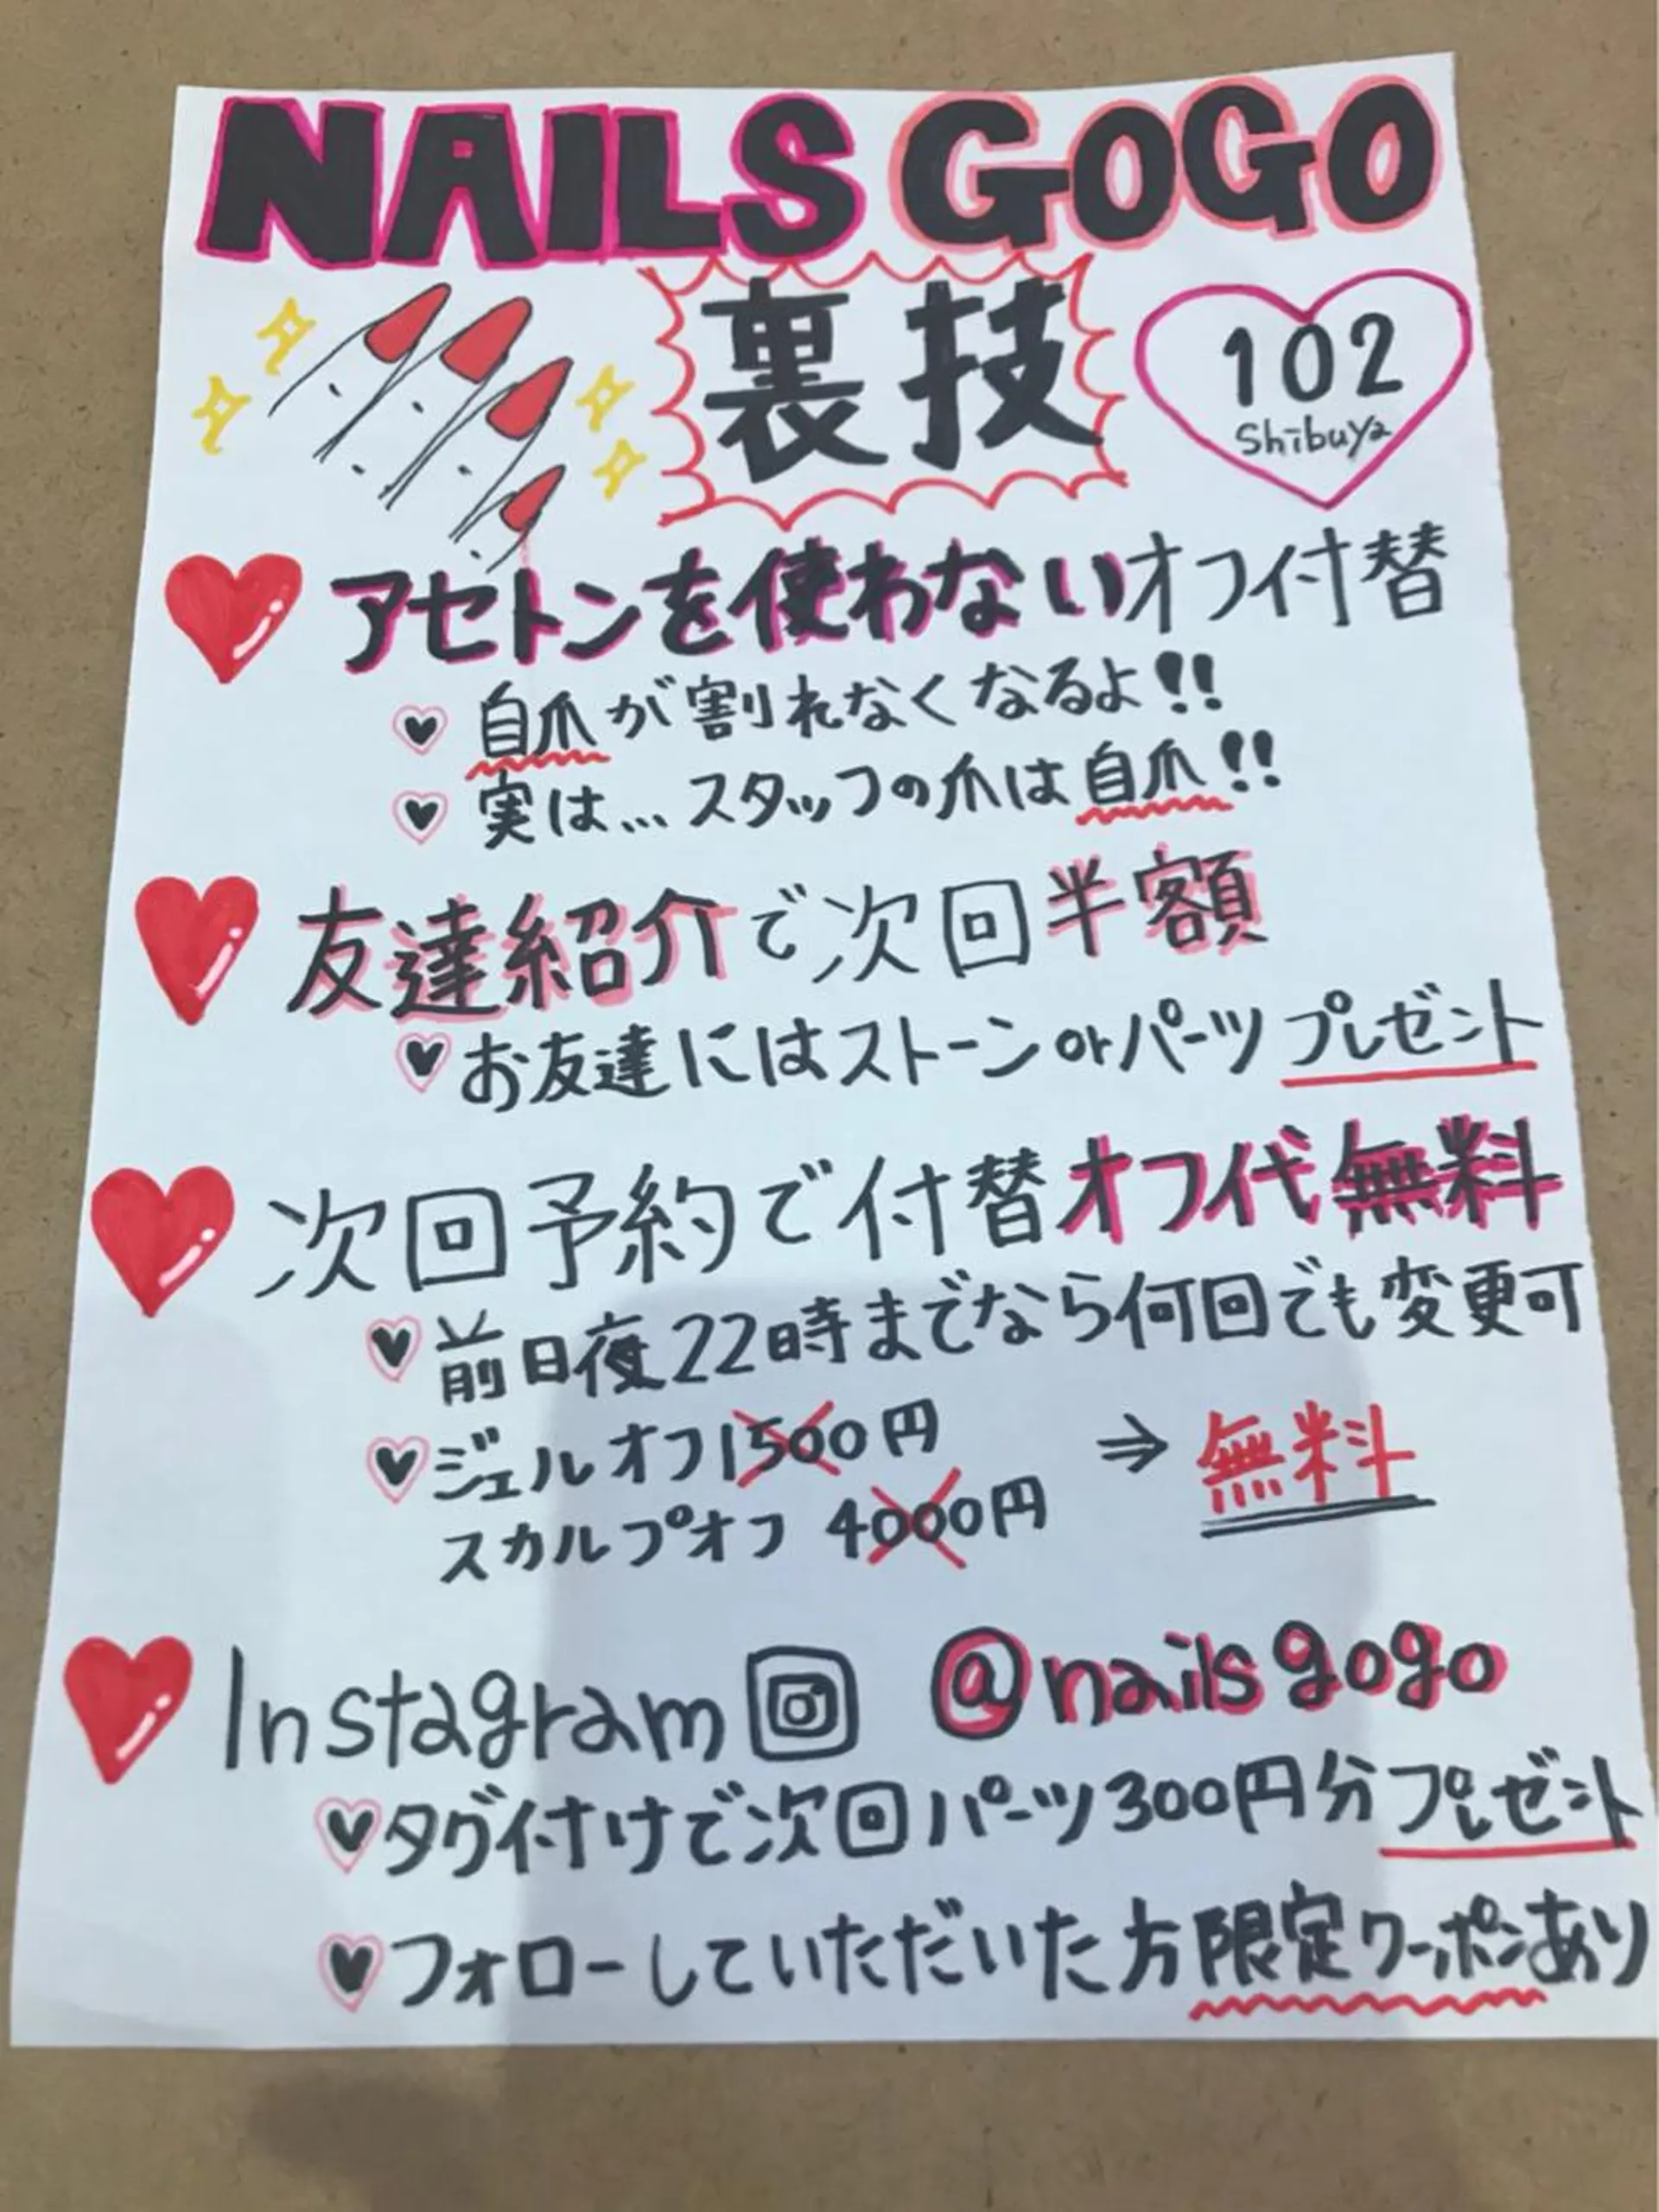 NAILS GOGO
裏技
102
Shibuya
アセトンを使わないオフ付替
自爪が割れなくなるよ!!
実は…スタッフの爪は自爪!!
友達紹介で次回半額
お友達にはストーンorパーツプレゼント
次回予約で付替オフ代無料
前日夜22時までなら何回でも変更可
ジェルオフ1500円
⇒ 無料
スカルプオフ 4000円
Instagram @nailsgogo
タグ付けで次回パーツ300円分プレゼント
フォローしていただいた方限定クーポンあり